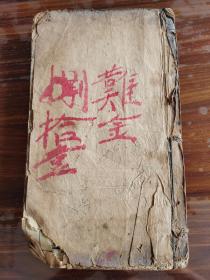 難全
捌拾壹